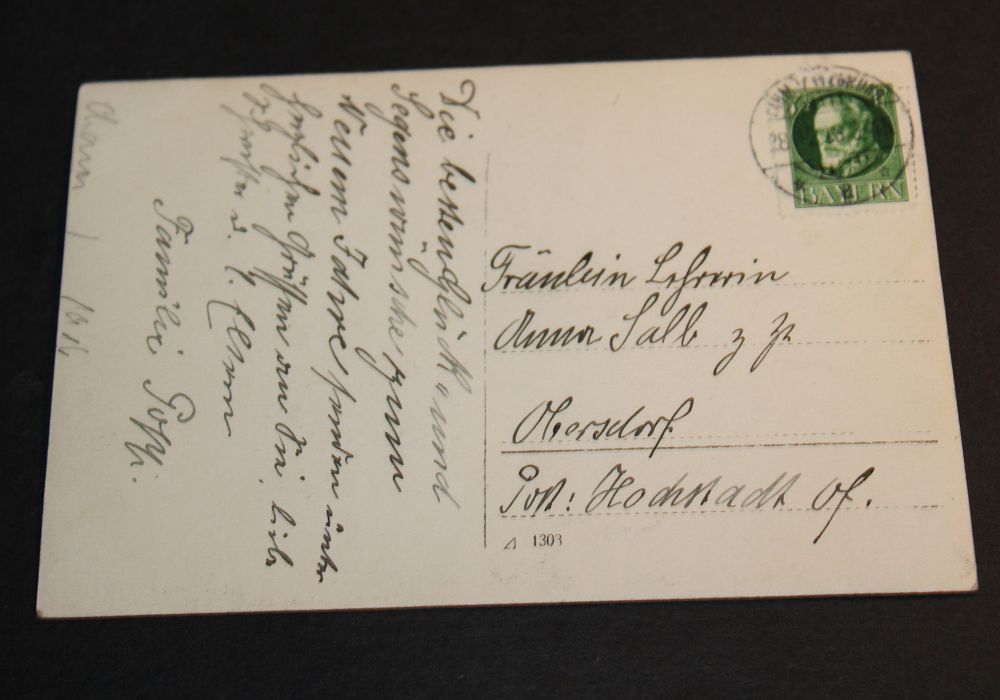 Die besten Glück- und
Segenswünsche zum
Neuen Jahre senden unter
herzlichen Grüßen an Sie, liebe
u. l. Eltern
Familie
Fräulein Lehrerin
Anna Salb z Zt
Obersdorf
Post: Hochstadt Of.
1303
BAYERN